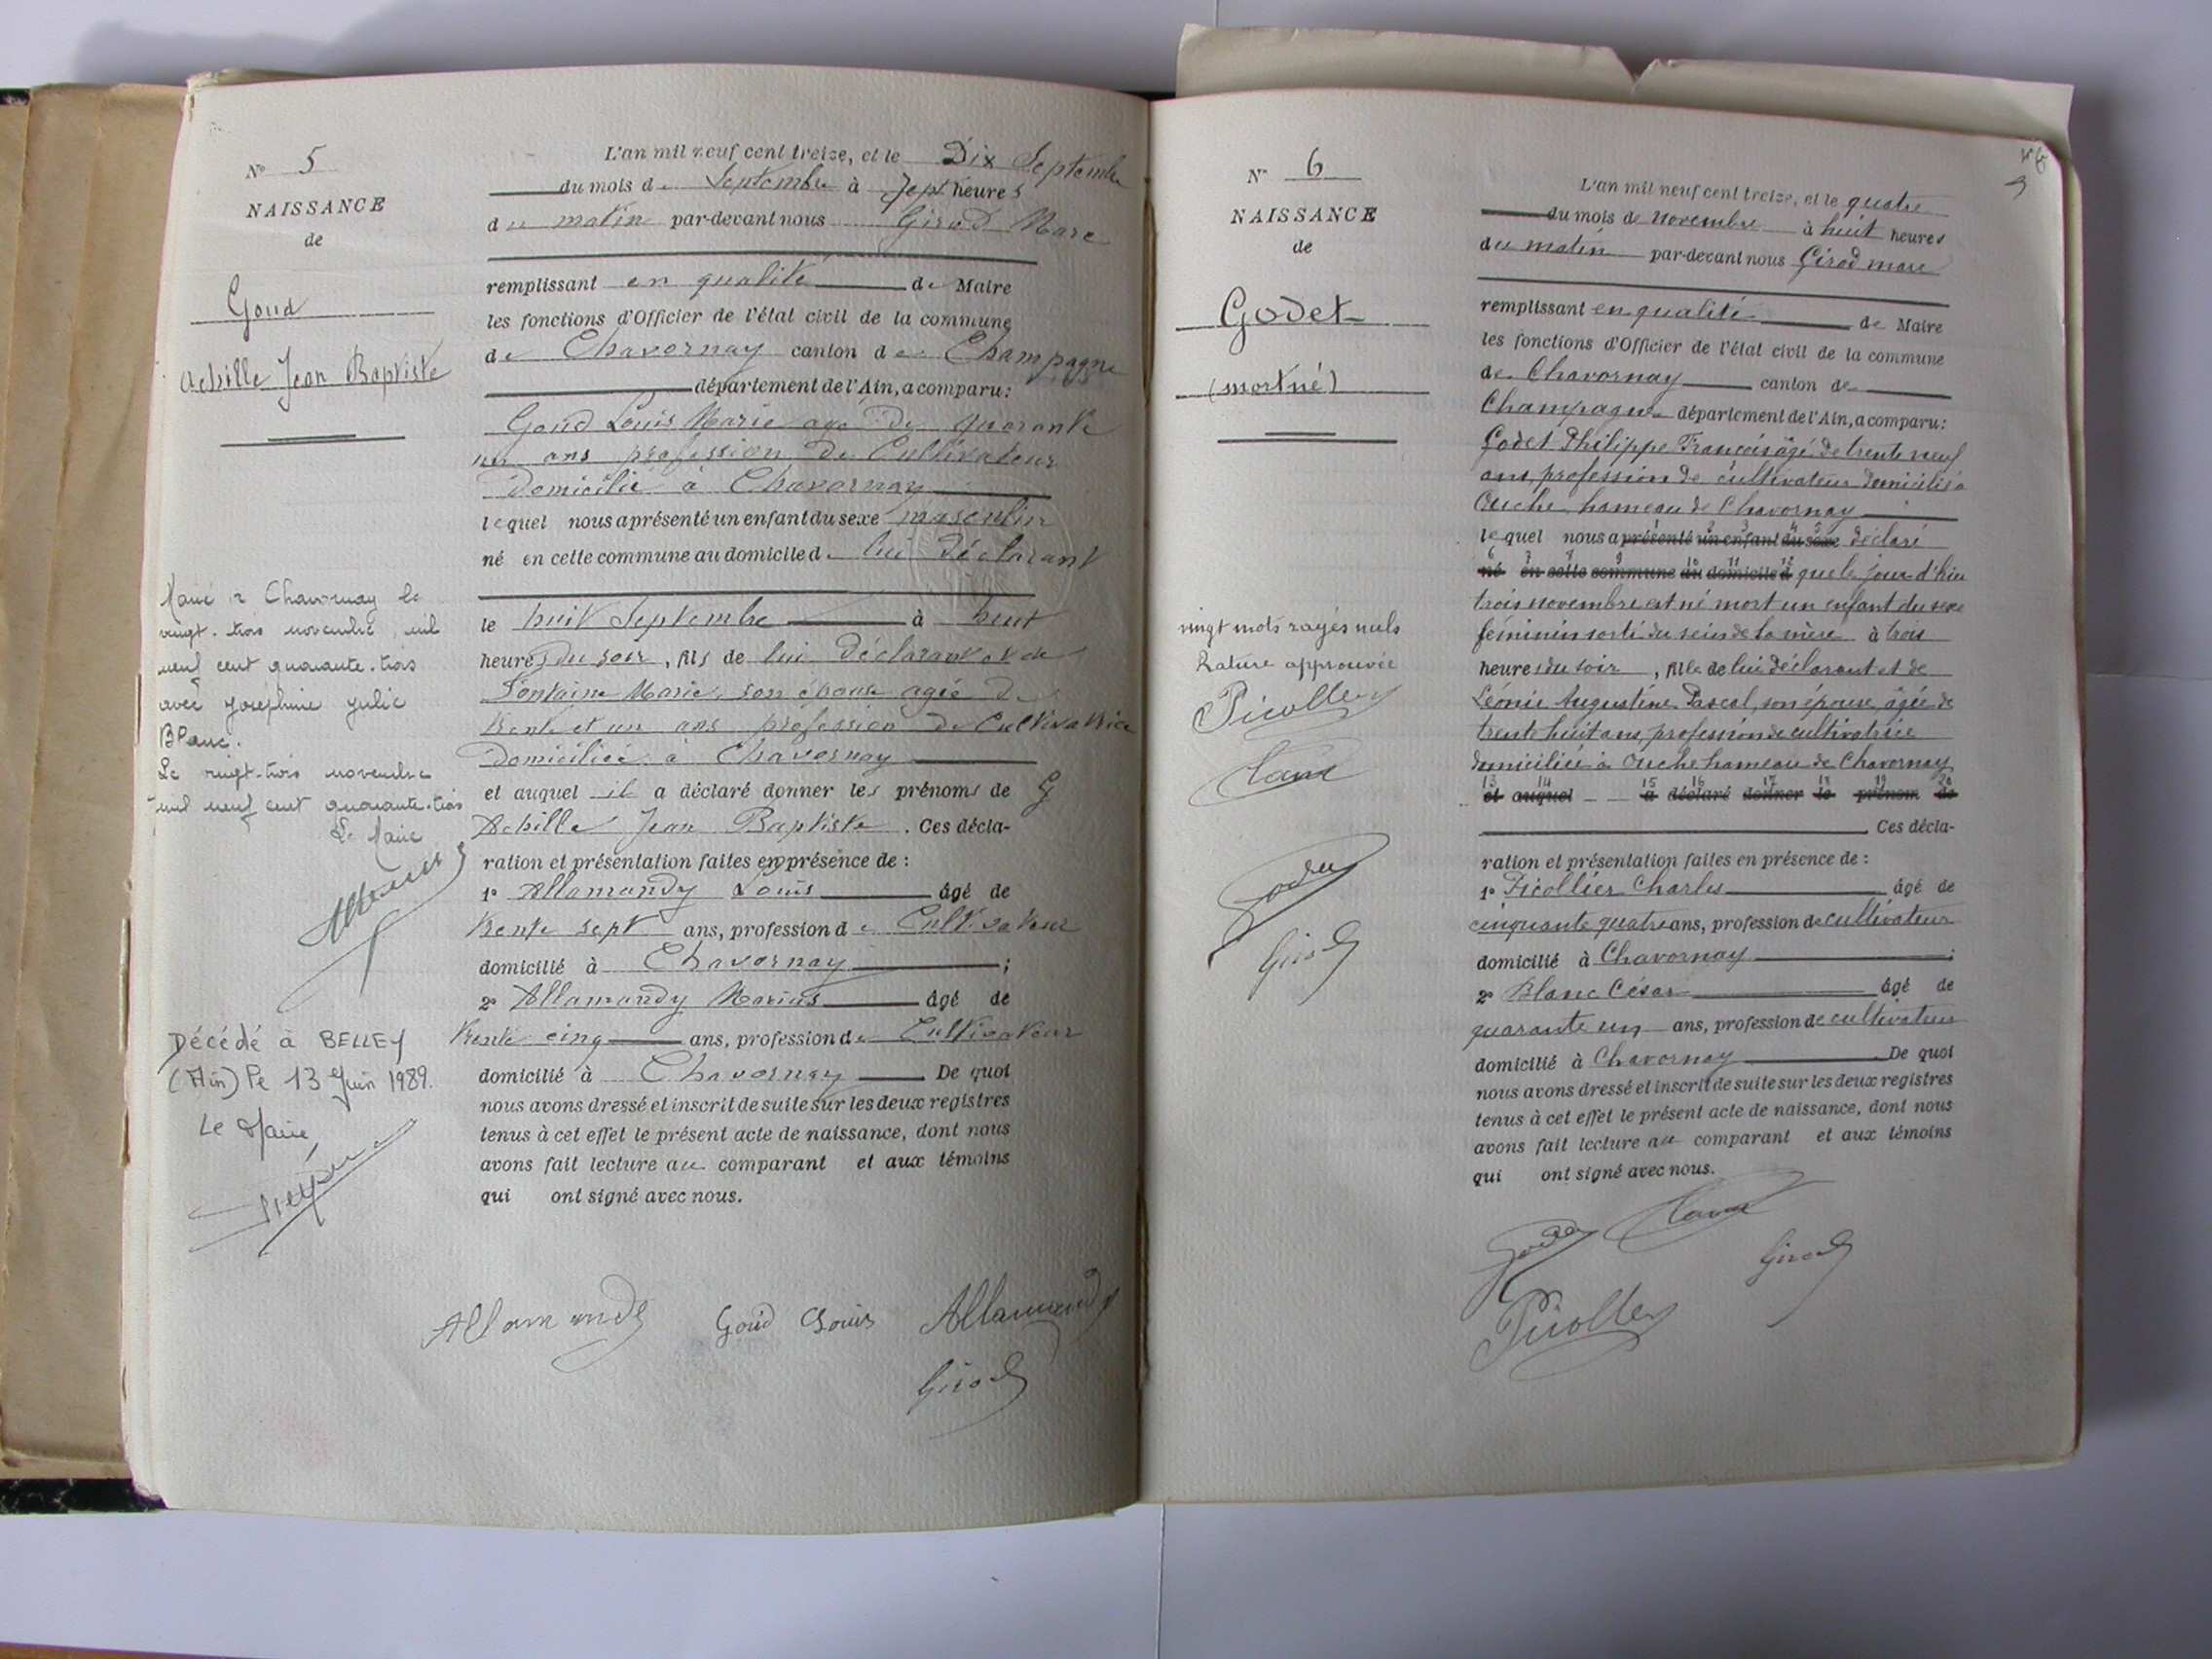 N° 5
NAISSANCE
de
Goud
Achille Jean Baptiste
Marié à Chavornay le
vingt-trois novembre mil
neuf cent quarante-trois
avec Joséphine Julie
Blanc.
Le vingt-trois novembre
mil neuf cent quarante-trois
Le Maire
Décédé à BELLEY
(Ain) le 13 Juin 1989.
Le Maire
L'an mil neuf cent treize, et le Dix Septembre
du mois de Septembre à Sept heures
du matin par-devant nous Girod Marc
remplissant en qualité de Maire
les fonctions d'Officier de l'état civil de la commune
de Chavornay canton de Champagne
département de l'Ain, a comparu:
Goud Louis Marie agé de quarante
un ans profession de Cultivateur
Domicilié à Chavornay
lequel nous a présenté un enfant du sexe masculin
né en cette commune au domicile de lui déclarant
le huit Septembre à huit
heures du soir, fils de lui Déclarant et de
Fontaine Marie, son épouse agée de
trente et un ans profession de Cultivatrice
Domiciliée à Chavornay
et auquel il a déclaré donner les prénoms de G
Achille Jean Baptiste. Ces décla-
ration et présentation faites en présence de :
1° Allamandy Louis âgé de
trente sept ans, profession de Cultivateur
domicilié à Chavornay ;
2° Allamandy Marius âgé de
trente cinq ans, profession de Cultivateur
domicilié à Chavornay De quoi
nous avons dressé et inscrit de suite sur les deux registres
tenus à cet effet le présent acte de naissance, dont nous
avons fait lecture au comparant et aux témoins
qui ont signé avec nous.
Allamandy Goud Louis Allamandy
Girod
N° 6
NAISSANCE
de
Godet
(mort né)
vingt mots rayés nuls
Rature approuvée
Picollier
Blanc
Godet
Girod
L'an mil neuf cent treize, et le quatre
du mois de novembre à huit heures
du matin par-devant nous Girod marc
remplissant en qualité de Maire
les fonctions d'Officier de l'état civil de la commune
de Chavornay canton de
Champagne département de l'Ain, a comparu:
Godet Philippe François âgé de trente neuf
ans, profession de cultivateur domicilié à
Ouche hameau de Chavornay
1 2 3 4 5
lequel nous a présenté un enfant du sexe déclaré
6 7 8 9 10 11 12
né en cette commune au domicile d que le jour d'hier
trois novembre est né mort un enfant du sexe
féminin sorti du sein de la mère à trois
heures du soir, fille de lui déclarant et de
Léonie Augustine Pascal, son épouse, âgée de
trente huit ans, profession de cultivatrice
domiciliée à Ouche hameau de Chavornay
13 14 15 16 17 18 19 20
et auquel a déclaré donner le prénom de
Ces décla-
ration et présentation faites en présence de :
1° Picollier Charles âgé de
cinquante quatre ans, profession de cultivateur
domicilié à Chavornay ;
2° Blanc César âgé de
quarante un ans, profession de cultivateur
domicilié à Chavornay De quoi
nous avons dressé et inscrit de suite sur les deux registres
tenus à cet effet le présent acte de naissance, dont nous
avons fait lecture au comparant et aux témoins
qui ont signé avec nous.
Godet Blanc
Girod
Picollier